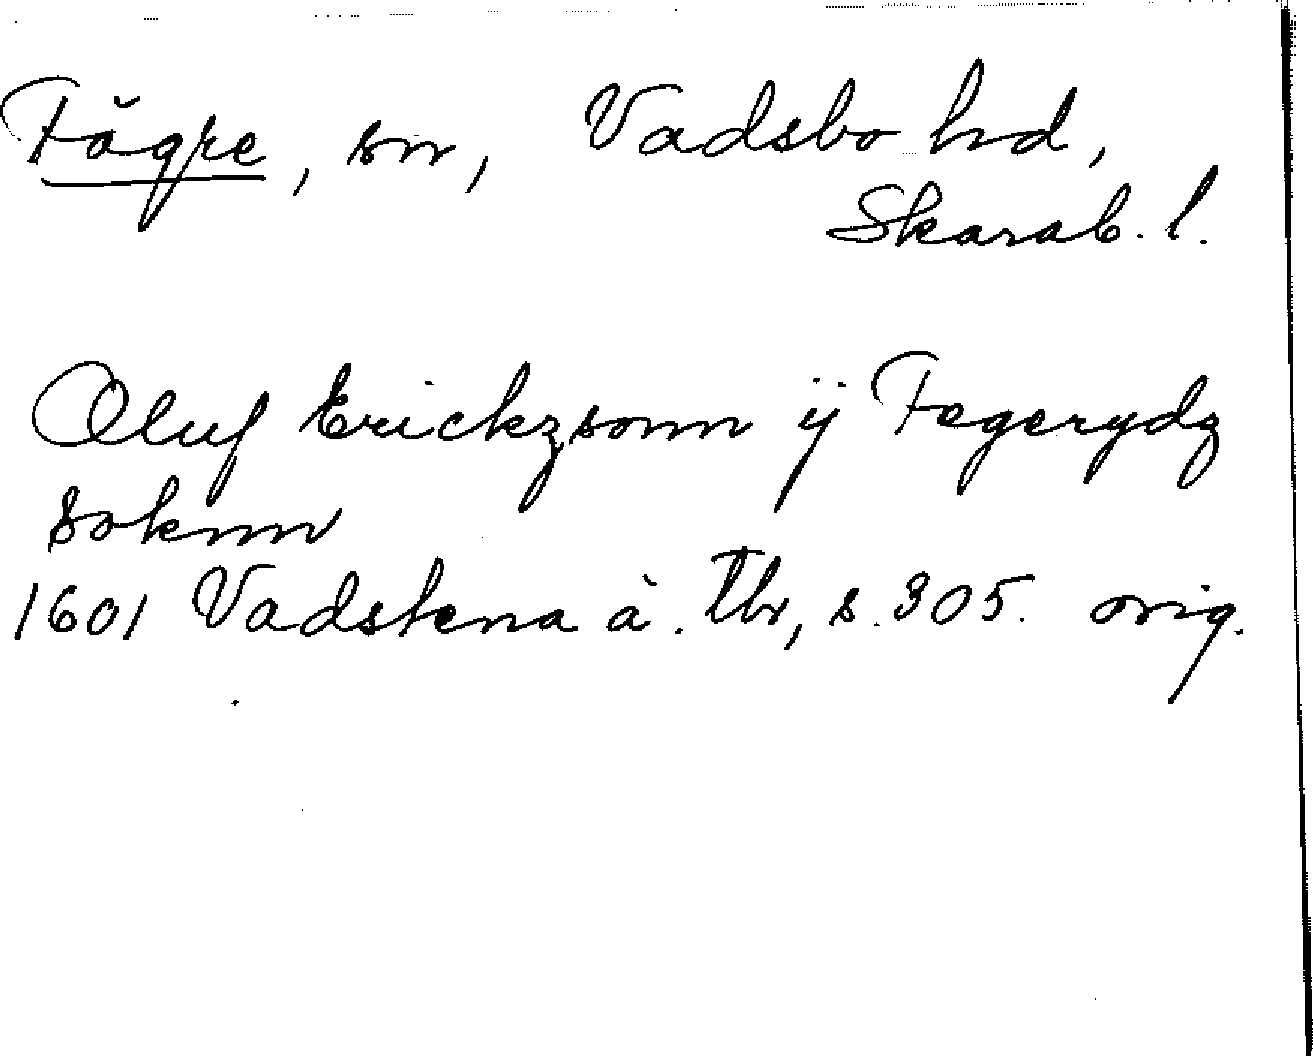 Fägre, sn, Vadsbo hd,
Skarab. l.
Oluf Erickzsonn ÿ Fegerydz
soknn
1601 Vadstena ä. Tbr, s. 305. orig.